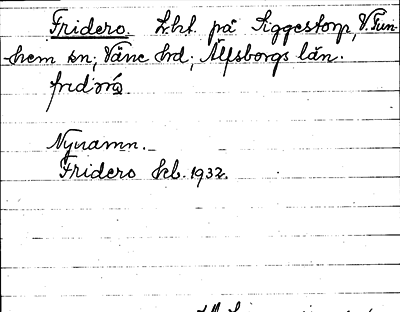 Fridero. Lht. på Siggestorp, V. Tun-
hem sn; Väne hrd; Älfsborgs län.
Nynamn.
Fridero hcb. 1932.